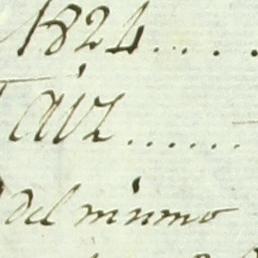 1824....
aiz.......
del mismo